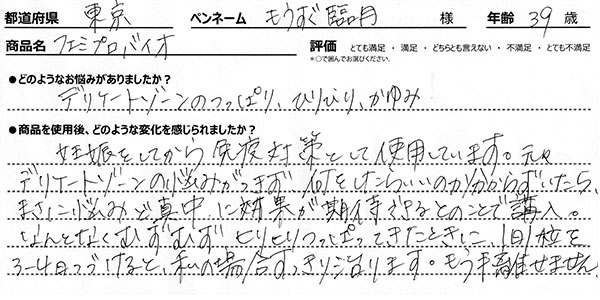 都道府県 東京 ペンネーム もうすぐ臨月 様 年齢 39 歳
商品名 フェミプロバイオ 評価 とても満足 ・ 満足 ・ どちらとも言えない ・ 不満足 ・ とても不満足
*○で囲んでお選びください。
●どのようなお悩みがありましたか?
デリケートゾーンのつっぱり、ひりひり、かゆみ
●商品を使用後、どのような変化を感じられましたか?
妊娠をしてから免疫対策として使用しています。元々
デリケートゾーンの悩みがつきず 何をしたらいいのか分からずいたら、
まさに悩みど真中に効果が期待できるとのことで購入。
なんとなくむずむず ヒリヒリつっぱってきたときに、1日1粒を
3〜4日つづけると、私の場合すっきりなおります。もう手離せません